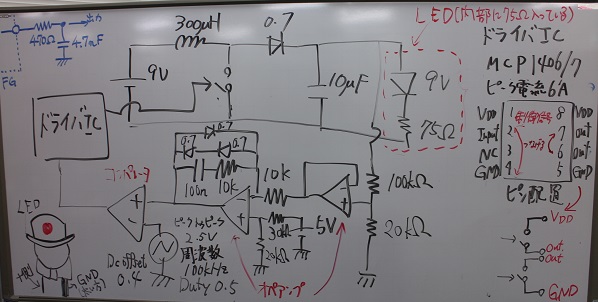 出力
470Ω
4.7nF
FG
300μH
0.7
LED(内部に75Ω入っている)
9V
10μF
9V
75Ω
ドライバIC
MCP1406/7
ピーク電流6A
VDD 1 8 VDD
Input 2 7 Out
NC 3 6 Out
GND 4 5 GND
ピン配置
VDD
Out
Out
GND
ドライバIC
コンパレータ
0.7
0.7
0.7
100n
10k
10k
30k
20kΩ
5V
100kΩ
20kΩ
オペアンプ
ピークtoピーク
2.5V
周波数
100kHz
Duty 0.5
Dc offset
0.4
LED
GND